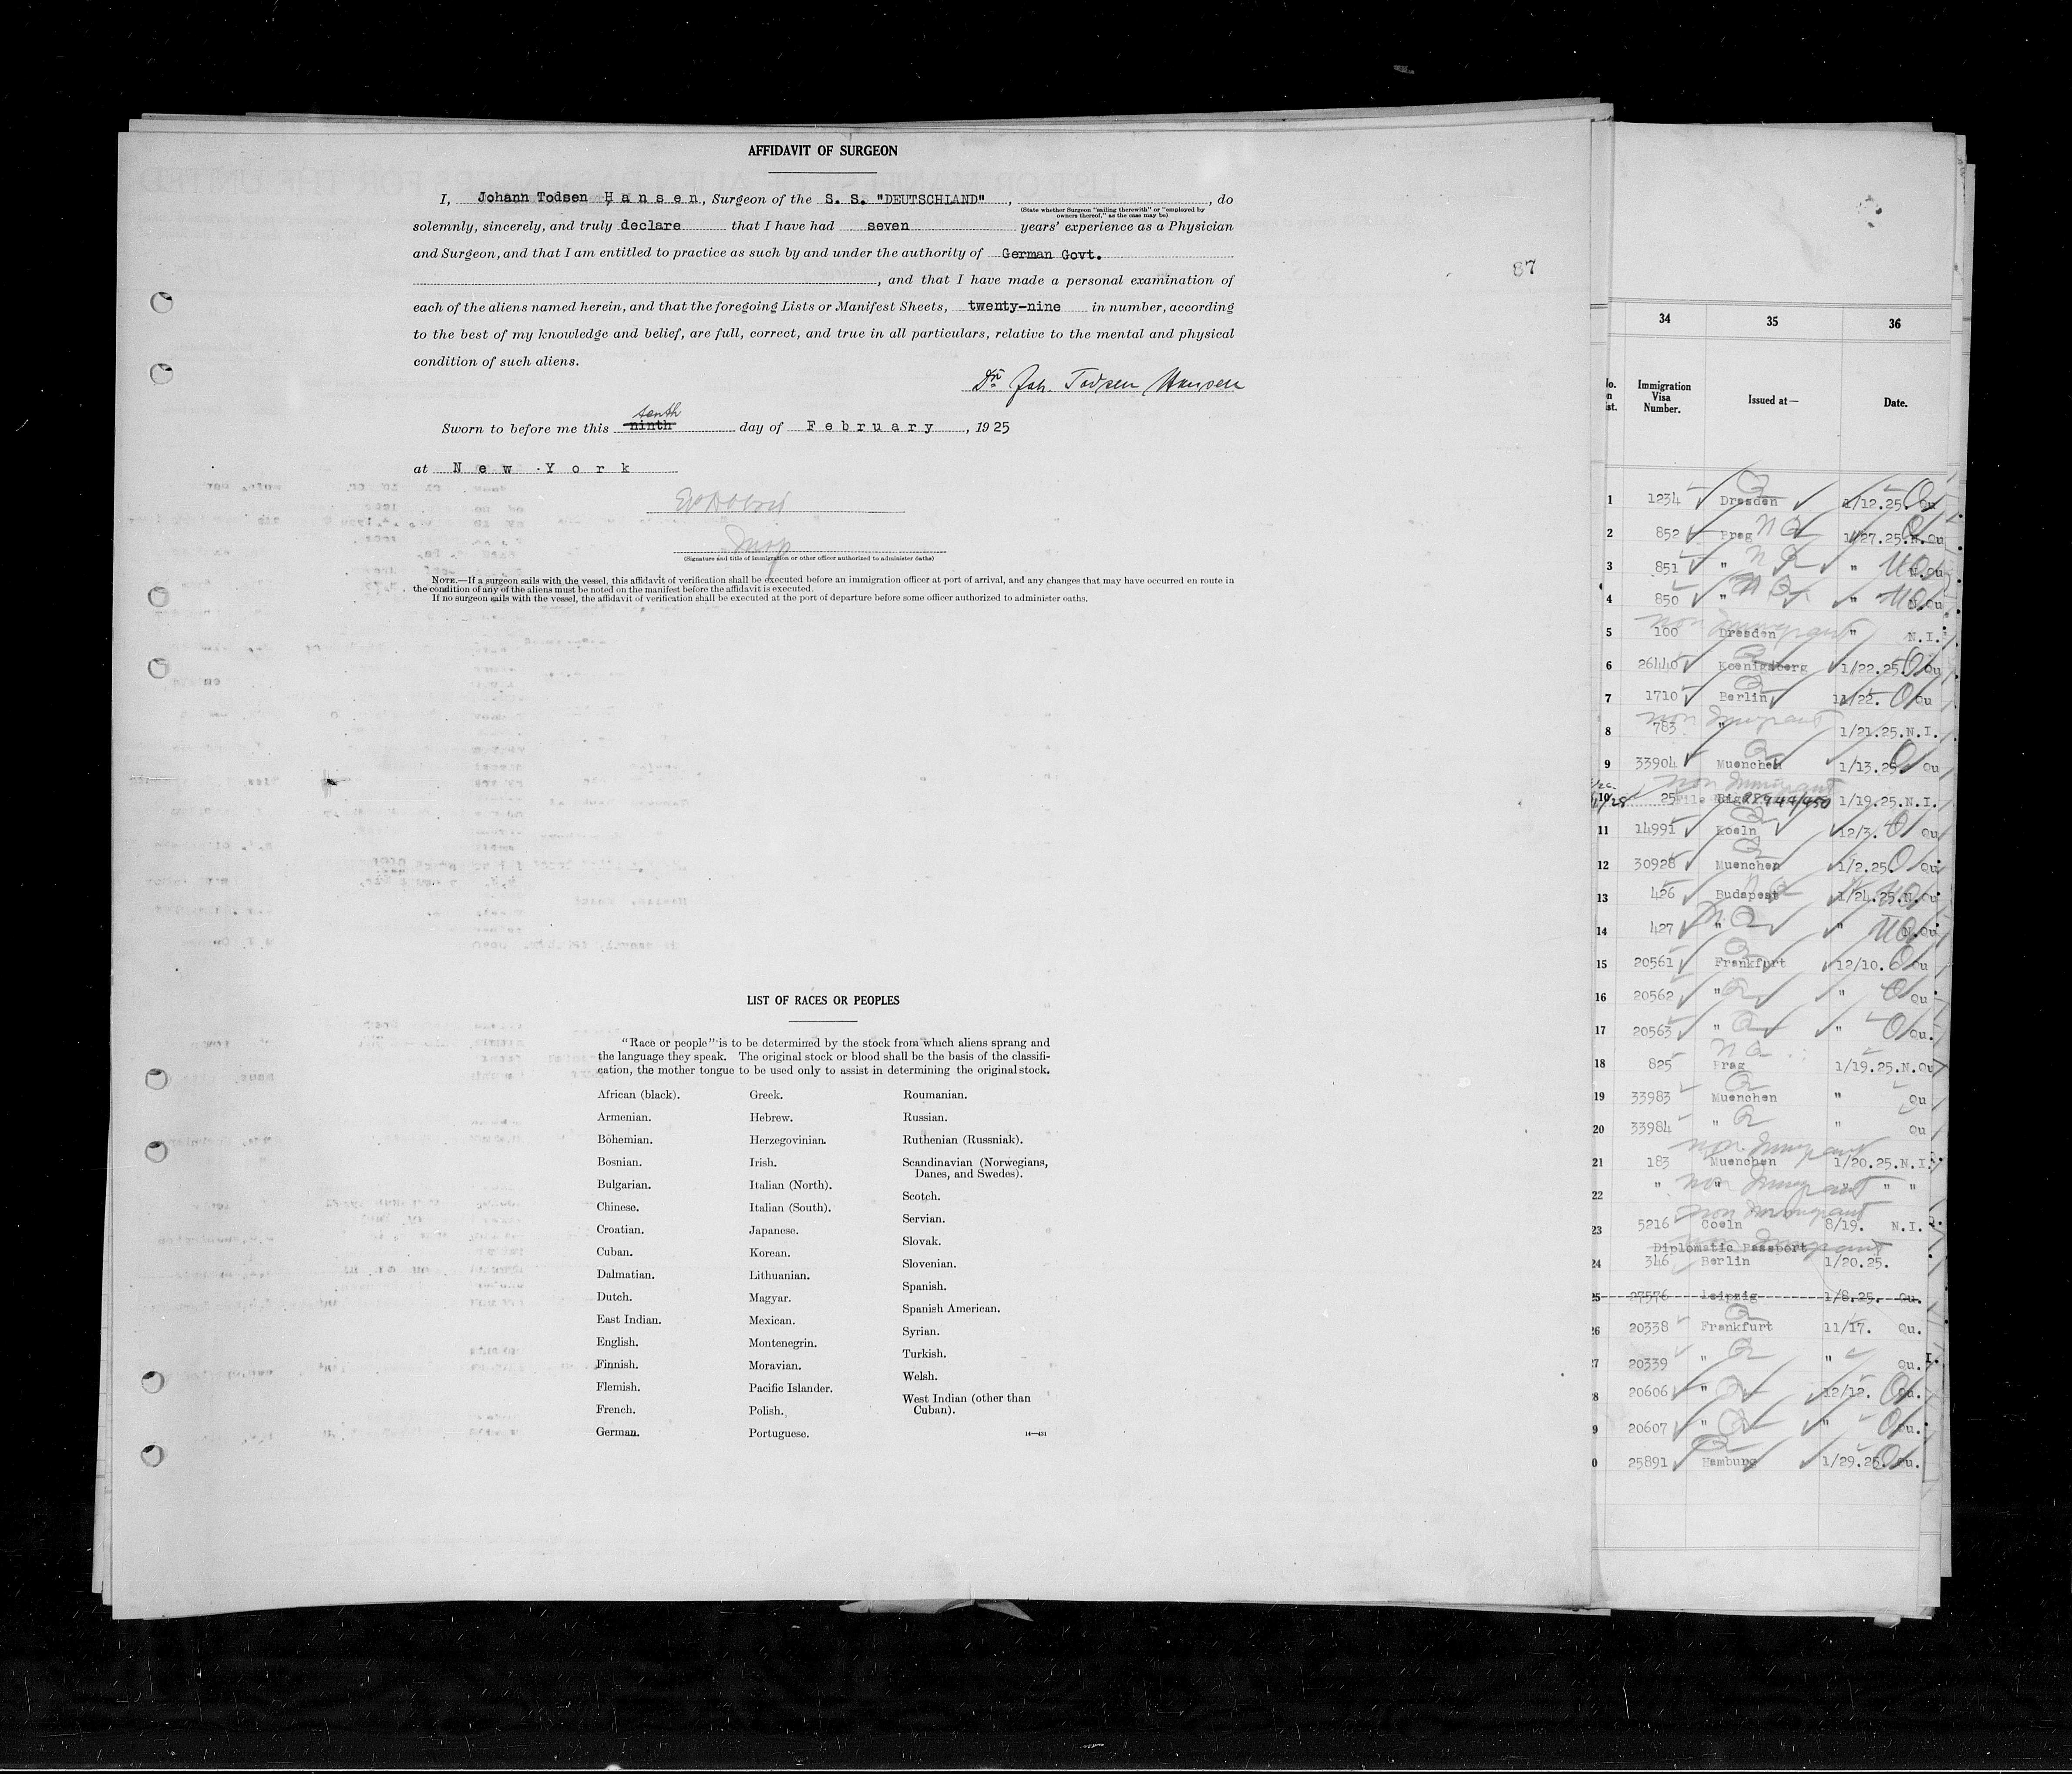 AFFIDAVIT OF SURGEON
I, Johann Todsen Hansen, Surgeon of the S. S. "DEUTSCHLAND", , do
(State whether Surgeon "sailing therewith" or "employed by
owners thereof," as the case may be)
solemnly, sincerely, and truly declare that I have had seven years' experience as a Physician
and Surgeon, and that I am entitled to practice as such by and under the authority of German Govt.
, and that I have made a personal examination of
each of the aliens named herein, and that the foregoing Lists or Manifest Sheets, twenty-nine in number, according
to the best of my knowledge and belief, are full, correct, and true in all particulars, relative to the mental and physical
condition of such aliens.
Dr. Joh. Todsen Hansen
tenth
Sworn to before me this ninth day of February, 1925
at New York
Insp
(Signature and title of immigration or other officer authorized to administer oaths)
NOTE.—If a surgeon sails with the vessel, this affidavit of verification shall be executed before an immigration officer at port of arrival, and any changes that may have occurred en route in
the condition of any of the aliens must be noted on the manifest before the affidavit is executed.
If no surgeon sails with the vessel, the affidavit of verification shall be executed at the port of departure before some officer authorized to administer oaths.
87
LIST OF RACES OR PEOPLES
"Race or people" is to be determined by the stock from which aliens sprang and
the language they speak. The original stock or blood shall be the basis of the classifi-
cation, the mother tongue to be used only to assist in determining the original stock.
African (black).
Armenian.
Bohemian.
Bosnian.
Bulgarian.
Chinese.
Croatian.
Cuban.
Dalmatian.
Dutch.
East Indian.
English.
Finnish.
Flemish.
French.
German.
Greek.
Hebrew.
Herzegovinian.
Irish.
Italian (North).
Italian (South).
Japanese.
Korean.
Lithuanian.
Magyar.
Mexican.
Montenegrin.
Moravian.
Pacific Islander.
Polish.
Portuguese.
Roumanian.
Russian.
Ruthenian (Russniak).
Scandinavian (Norwegians,
Danes, and Swedes).
Scotch.
Servian.
Slovak.
Slovenian.
Spanish.
Spanish American.
Syrian.
Turkish.
Welsh.
West Indian (other than
Cuban).
14—431
34 35 36
Immigration
Visa
Number.
Issued at—
Date.
1 1234 Dresden 1/12.25. Qu
2 852 Prag N Q 1/27.25.N.Qu
3 851 " N Q " N.Qu
4 850 " N Q " N.Qu
5 100 Dresden " N.I.
Non Immigrant
6 26440 Koenigsberg 1/22.25. Qu
7 1710 Berlin 11/22. Qu
Non Immigrant
8 783 " 1/21.25.N.I.
9 33904 Muenchen 1/13.25 Qu
Non Immigrant
10 25 Riga 1/19.25.N.I.
11 14991 Koeln 12/3. Qu
12 30928 Muenchen 1/2.25 Qu
13 426 Budapest 1/24.25.N.Qu
14 427 " " N.Qu
15 20561 Frankfurt 12/10. Qu
16 20562 " " Qu
17 20563 " " Qu.
18 825 Prag 1/19.25.N.Qu
19 33983 Muenchen " Qu
20 33984 " " Qu
Non Immigrant
21 183 Muenchen 1/20.25.N.I.
22 " " Non Immigrant " " "
Non Immigrant
23 5216 Coeln 8/19. N.I.
Diplomatic Passport
24 346 Berlin 1/20.25.
25 27576 Leipzig 1/8.25. Qu.
26 20338 Frankfurt 11/17. Qu.
27 20339 " " Qu.
8 20606 " 12/12. Qu.
9 20607 " " Qu.
0 25891 Hamburg 1/29.25. Qu.